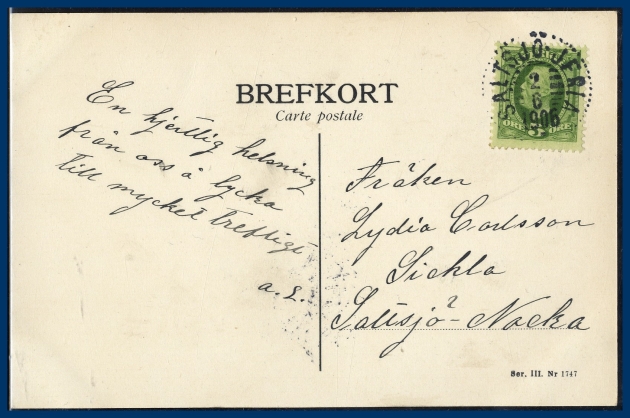 BREFKORT
Carte postale
SALTSJÖ-JERLA
2
6
1906
5 ÖRE
En hjertlig helsning
från oss å lycka
till mycket trefligt
a. L.
Fröken
Lydia Carlsson
Sickla
Saltsjö-Nacka
Ser. III. Nr 1747